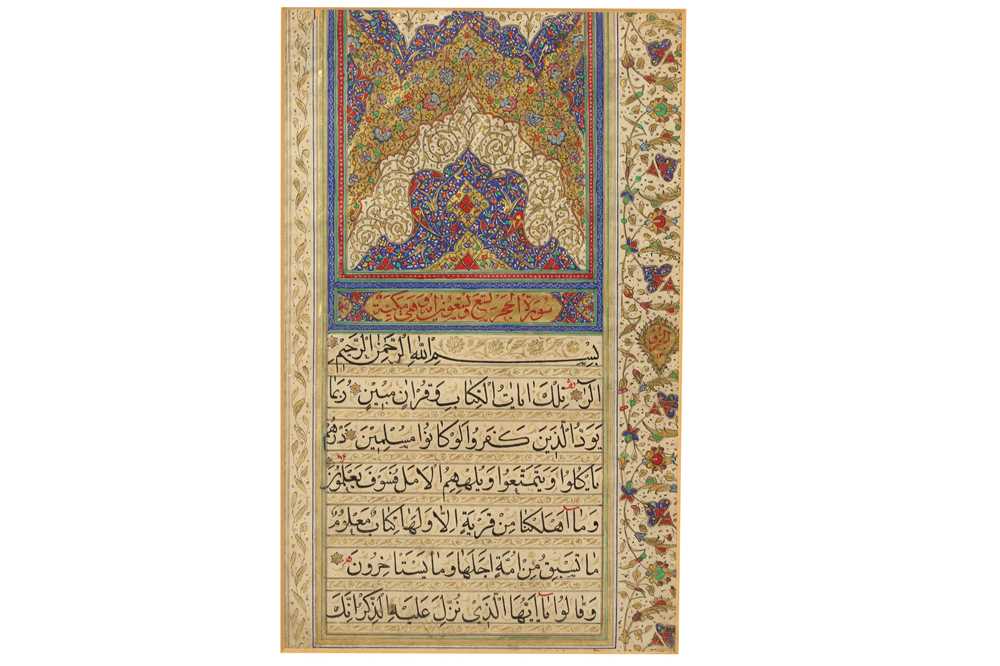 سورة الحجر تسع و تسعون اية و هی مكیة
بسم الله الرحمن الرحيم
الر تلك ايات الكتاب و قران مبين ربما
يود الذين كفروا لو كانوا مسلمين ذرهم
يأكلوا و يتمتعوا و يلههم الامل فسوف يعلمون
و ما اهلكنا من قرية الا و لها كتاب معلوم
ما تسبق من امة اجلها و ما يستاخرون
و قالوا يا ايها الذي نزل عليه الذكر انك